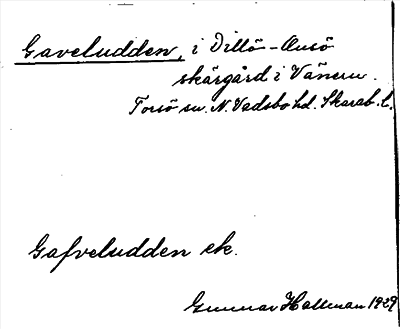 Gaveludden, i Dillö-Onsö
skärgård i Vänern.
Torsö sn. N. Vadsbo hd. Skarab. l.
Gafveludden ek.
Gunnar Hallman 1929